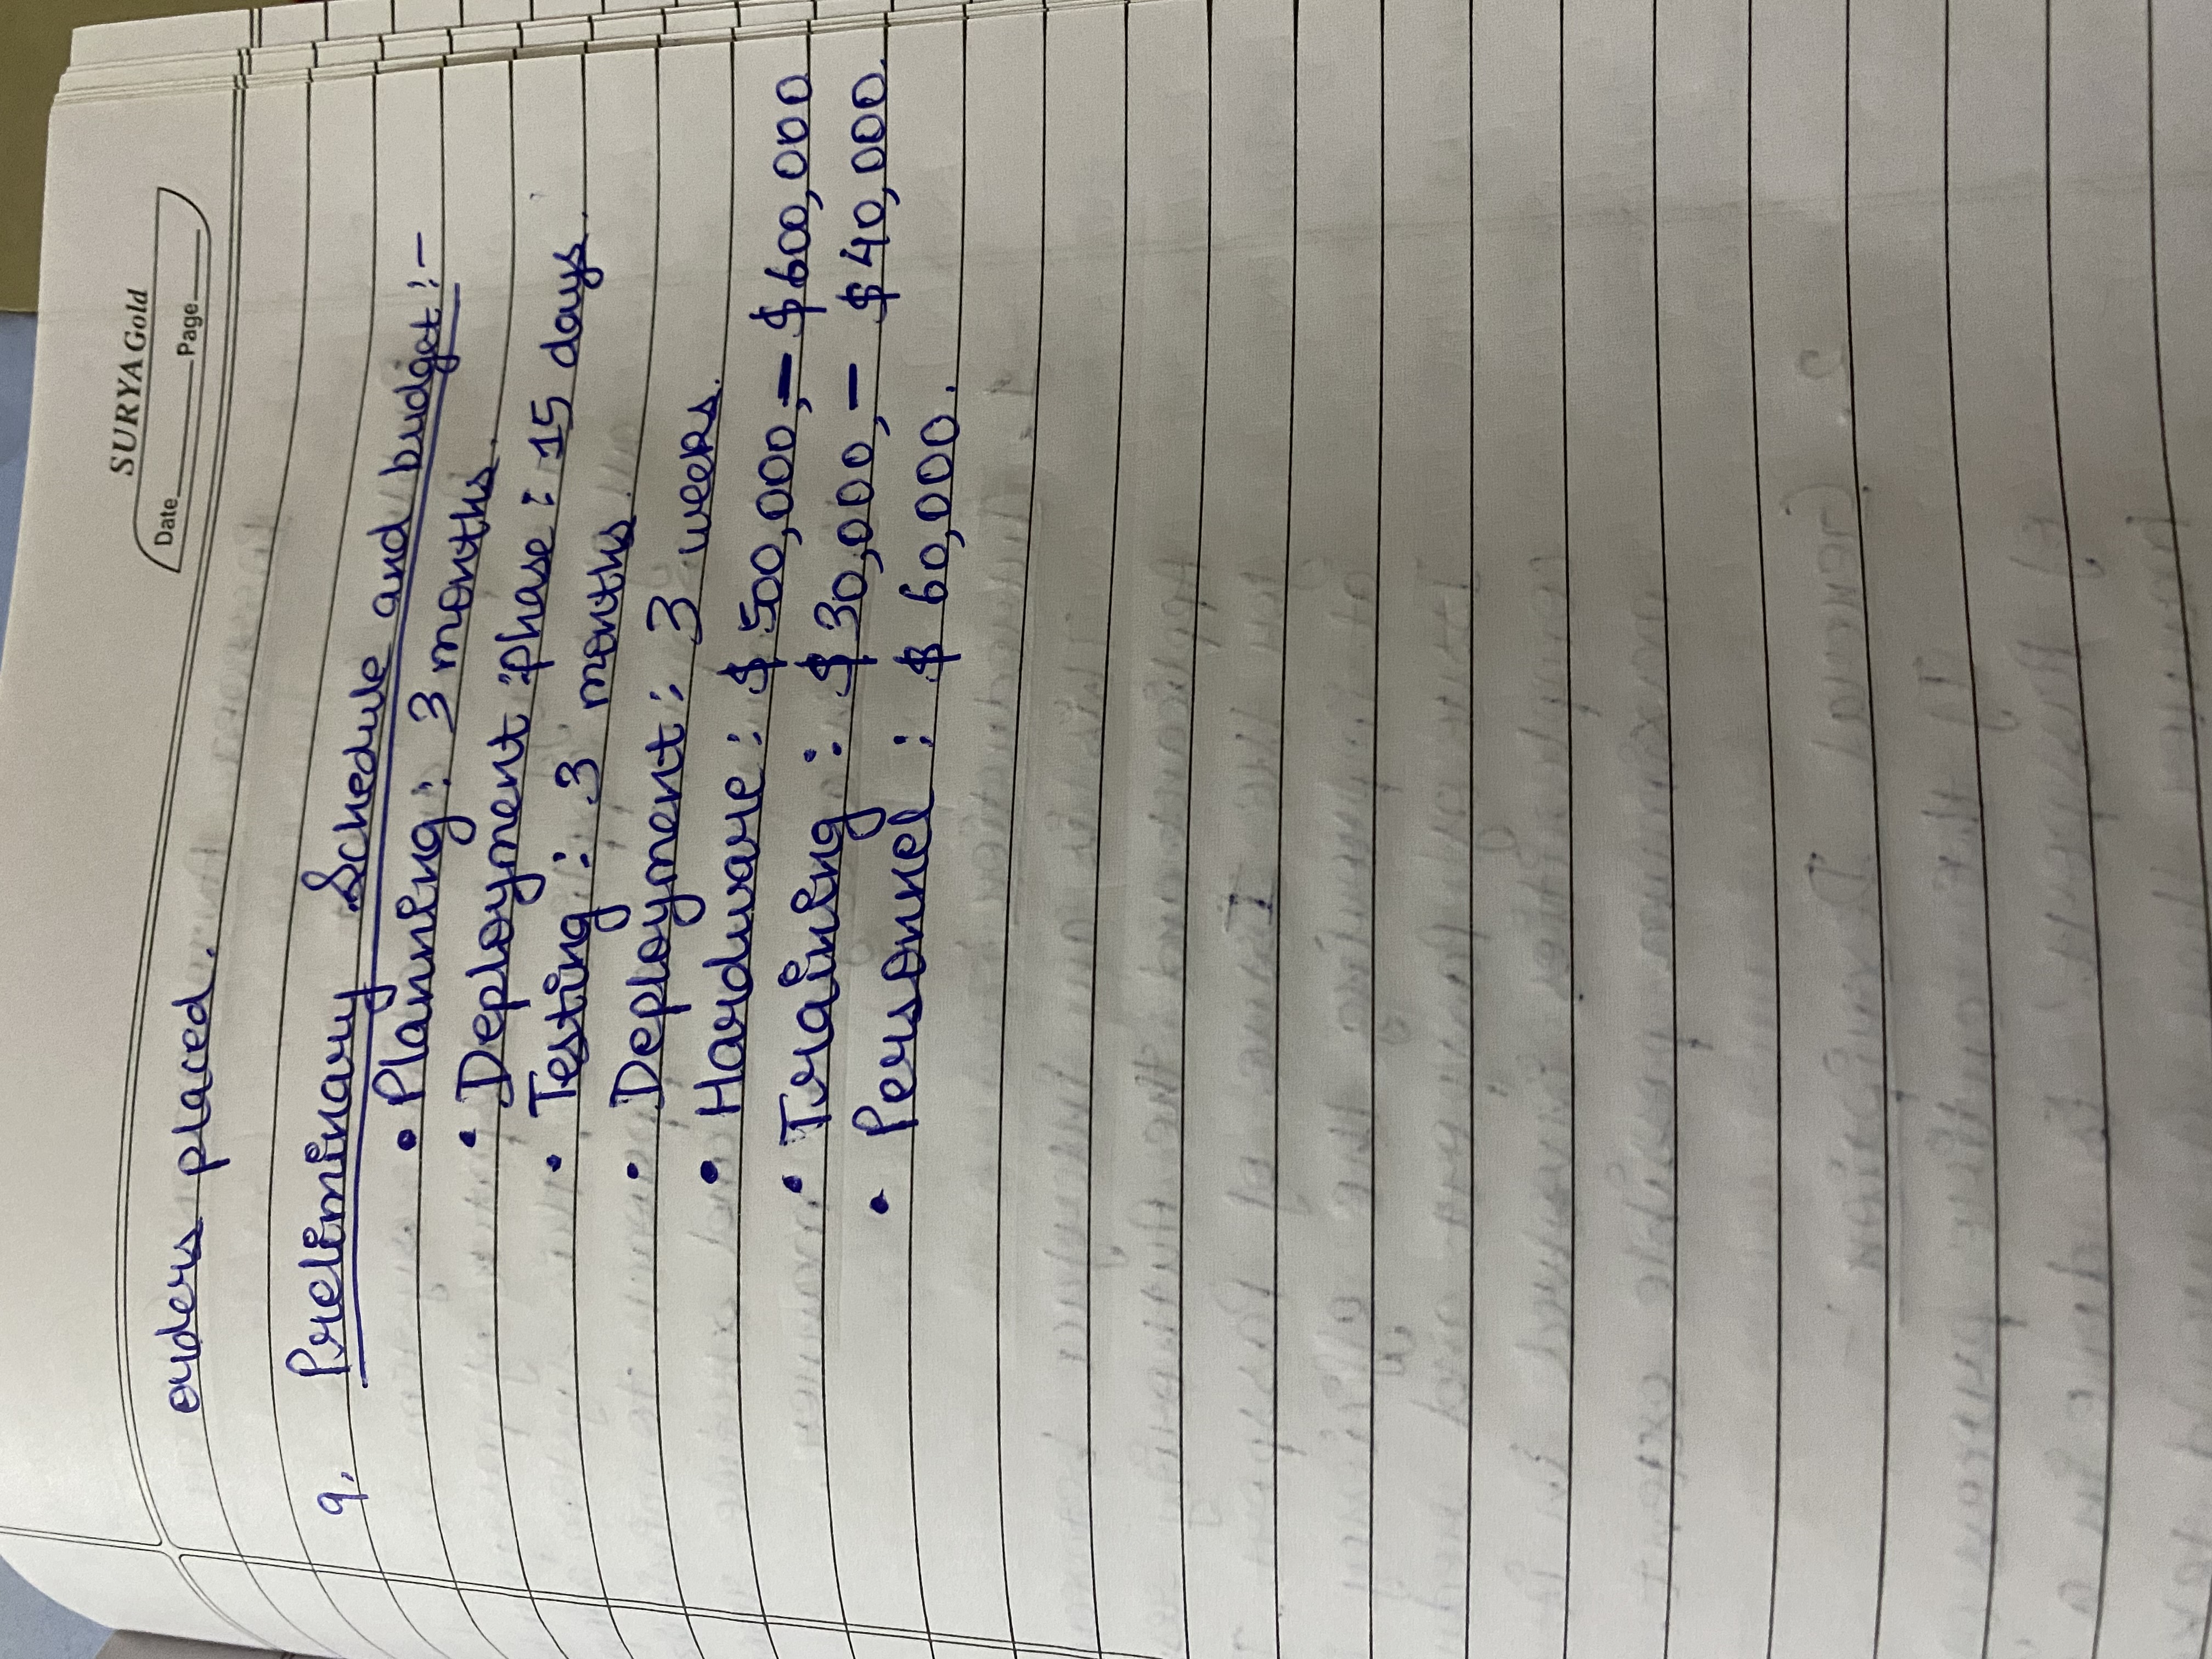 SURYA Gold
Date Page
orders placed.
9. Preliminary Schedule and budget :-
• Planning : 3 months.
• Deployment phase : 15 days.
• Testing : 3 months.
• Deployment : 3 weeks.
• Hardware : $ 500,000, - $600,000
• Training : $ 30,000, - $ 40,000.
• Personnel : $ 60,000.